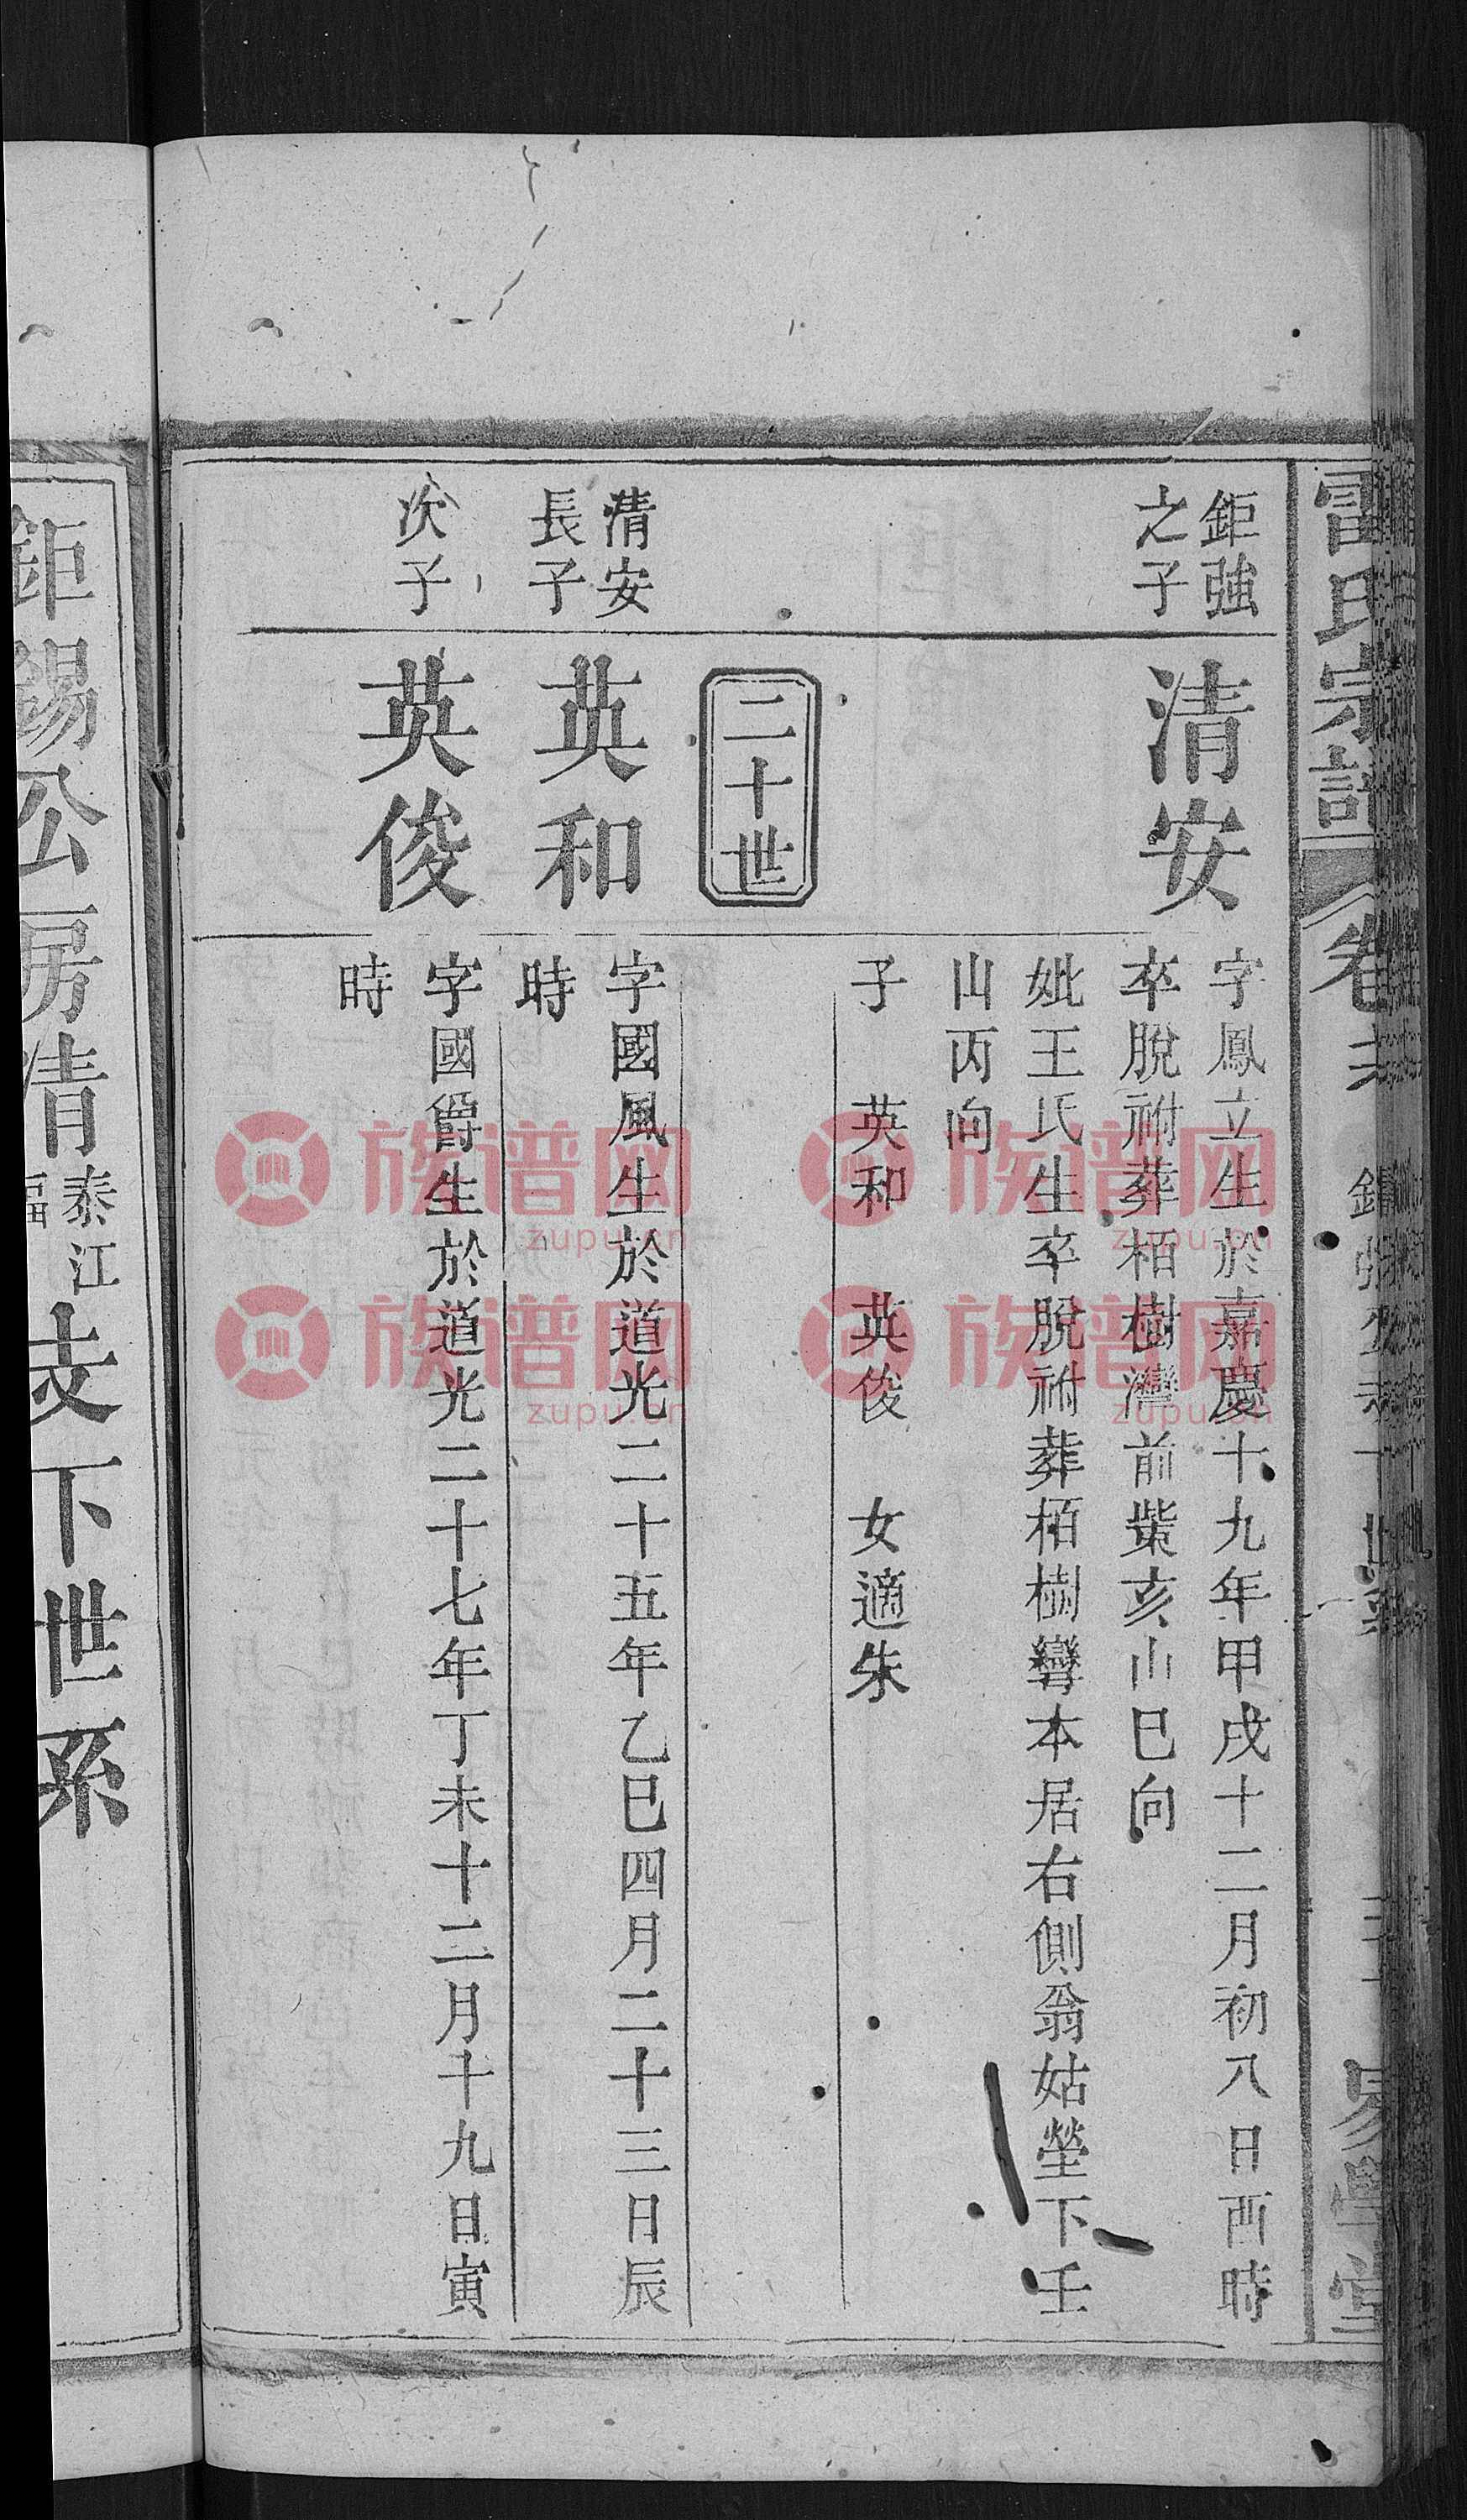 雷氏宗譜
卷
易學堂
鉅強
之子
清安
字鳳立生於嘉慶十九年甲戌十二月初八日酉時
卒脫祔葬栢樹灣前柴亥山巳向
妣王氏生卒脫祔葬栢樹彎本居右側翁姑塋下壬
山丙向
子 英和 英俊 女適朱
二十世
清安
長子
英和
字國風生於道光二十五年乙巳四月二十三日辰
時
次子
英俊
字國爵生於道光二十七年丁未十二月十九日寅
時
鉅錫公房清泰江福支下世系
族谱网
zupu.cn
族谱网
zupu.cn
族谱网
zupu.cn
族谱网
zupu.cn